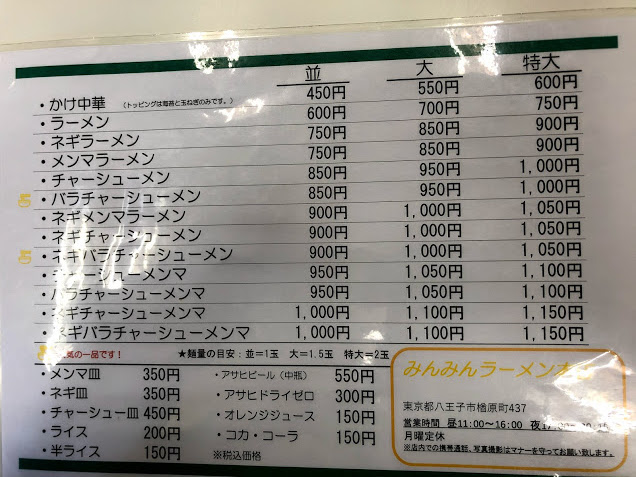 並 大 特大
・かけ中華 （トッピングは海苔と玉ねぎのみです。） 450円 550円 600円
・ラーメン 600円 700円 750円
・ネギラーメン 750円 850円 900円
・メンマラーメン 750円 850円 900円
・チャーシューメン 850円 950円 1,000円
・バラチャーシューメン 850円 950円 1,000円
・ネギメンマラーメン 900円 1,000円 1,050円
・ネギチャーシューメン 900円 1,000円 1,050円
・ネギバラチャーシューメン 900円 1,000円 1,050円
・チャーシューメンマ 950円 1,050円 1,100円
・バラチャーシューメンマ 950円 1,050円 1,100円
・ネギチャーシューメンマ 1,000円 1,100円 1,150円
・ネギバラチャーシューメンマ 1,000円 1,100円 1,150円
気の一品です！ ★麺量の目安：並＝1玉 大＝1.5玉 特大＝2玉
・メンマ皿 350円
・ネギ皿 350円
・チャーシュー皿 450円
・ライス 200円
・半ライス 150円
・アサヒビール（中瓶） 550円
・アサヒドライゼロ 300円
・オレンジジュース 150円
・コカ・コーラ 150円
※税込価格
みんみんラーメン本
東京都八王子市楢原町437
営業時間 昼11:00～16:00 夜
月曜定休
※店内での携帯通話、写真撮影はマナーを守ってお願い致します。